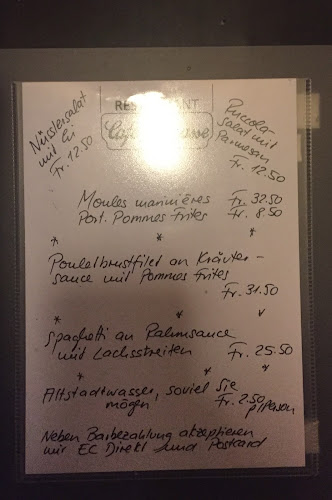 RESTAURANT
Nüsslersalat
mit Ei
Fr. 12.50
Ruccola-
salat mit
Parmesan
Fr. 12.50
Moules marinières Fr. 32.50
Port. Pommes Frites Fr. 8.50
* * *
Pouletbrustfilet an Kräuter-
sauce mit Pommes Frites
Fr. 31.50
* * *
Spaghetti an Rahmsauce
mit Lachsstreifen Fr. 25.50
* * *
Altstadtwasser, soviel Sie
mögen Fr. 2.50
p/Person
Neben Barbezahlung akzeptieren
wir EC Direkt und Postcard